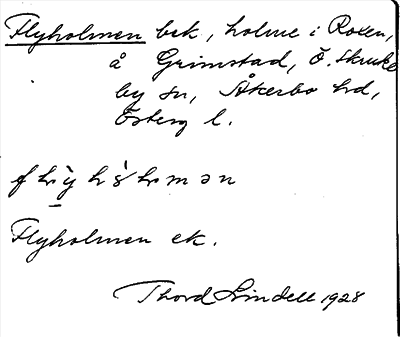 Flyholmen bek, holme i Roxen,
å Grimstad, Ö. Skruke
by sn, Åkerbo hd,
Österg l.
Flyholmen ek.
Thord Lindell 1928